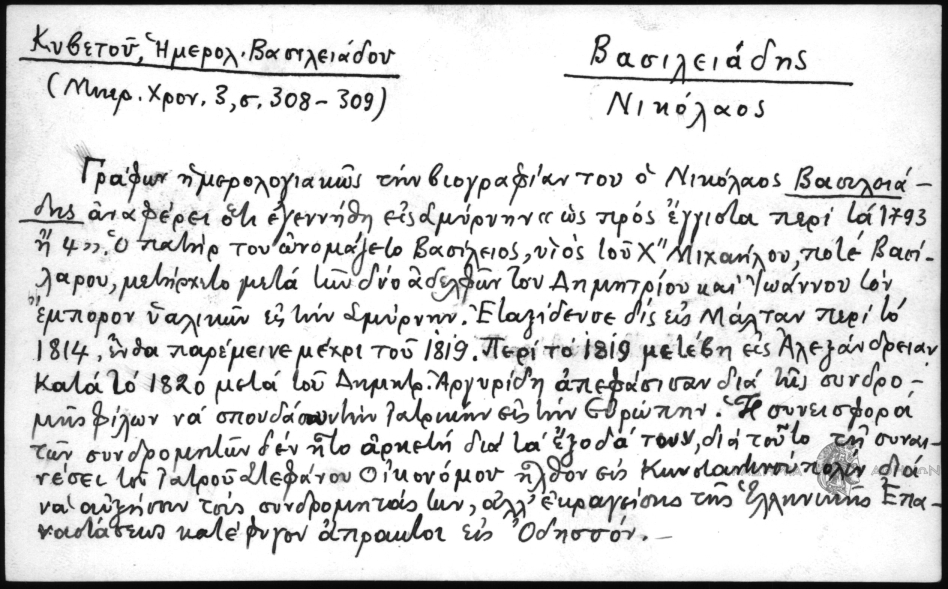 Κυβετοῦ, Ἡμερολ. Βασιλειάδου
(Μικρ. Χρον. 3, σ. 308-309)
Βασιλειάδης
Νικόλαος
Γράφων ἡμερολογιακῶς τήν βιογραφίαν του ὁ Νικόλαος Βασιλειά-
δης ἀναφέρει ὅτι ἐγεννήθη εἰς Σμύρνην «ὡς πρός ἔγγιστα περί τά 1793
ἤ 4». Ὁ πατήρ του ὠνομάζετο Βασίλειος, υἱός τοῦ Χ" Μιχαήλου, ποτέ Βασι-
λάρου, μετήρχετο μετά τῶν δύο ἀδελφῶν του Δημητρίου καί Ἰωάννου τόν
ἔμπορον ὑαλικῶν εἰς τήν Σμύρνην. Ἐταξίδευσε δίς εἰς Μάλταν περί τό
1814, ἔνθα παρέμεινε μέχρι τοῦ 1819. Περί τό 1819 μετέβη εἰς Ἀλεξάνδρειαν
Κατά τό 1820 μετά τοῦ Δημητρ. Ἀργυρίδη ἀπεφάσισαν διά τῆς συνδρο-
μῆς φίλων νά σπουδάσουν τήν Ἰατρικήν εἰς τήν Εὐρώπην. Ἡ συνεισφορά
τῶν συνδρομητῶν δέν ἦτο ἀρκετή διά τά ἔξοδά τους, διά τοῦτο τῇ συναι-
νέσει τοῦ Ἰατροῦ Στεφάνου Οἰκονόμου ἦλθον εἰς Κωνσταντινούπολιν διά
νά αὐξήσουν τούς συνδρομητάς των, ἀλλ' ἐκραγείσης τῆς Ἑλληνικῆς Ἐπα-
ναστάσεως κατέφυγον ἄπρακτοι εἰς Ὀδησσόν.-